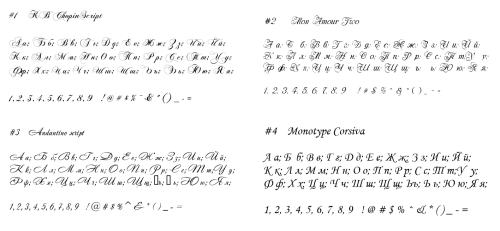 #1 K B Chopin Script
Аа; Бб; Вв; Гг; Дд; Ее; Жж; Зз; Ии; Йй;
Кк; Лл; Мм; Нн; Оо; Пп; Рр; Сс; Тт; Уу;
Фф; Хх; Цц; Чч; Шш; Щщ; Ъъ; Ьь; Юю; Яя;
1, 2, 3, 4, 5, 6, 7, 8, 9 ! @ # $ % ^ & * ( ) _ - =
#2 Mon Amour Two
Аа; Бб; Вв; Гг; Дд; Ее; Жж; Зз; Ии; Йй;
Кк; Лл; Мм; Нн; Оо; Пп; Рр; Сс; Тт; Уу;
Фф; Хх; Цц; Чч; Шш; Щщ; ъ; ь; Юю; Яя;
1, 2, 3, 4, 5, 6, 7, 8, 9 ! # $ % ^ & * ( ) _ - =
#3 Andantino script
Аа; Бб; Вв; Гг; Дд; Ее; Жж; Зз; Ии; Йй;
Кк; Лл; Мм; Нн; Оо; Пп; Рр; Сс; Тт; Уу;
Фф; Хх; Цц; Чч; Шш; Щщ; ь; Юю; Яя;
1, 2, 3, 4, 5, 6, 7, 8, 9 ! @ # $ % ^ & * ( ) _ - =
#4 Monotype Corsiva
Аа; Бб; Вв; Гг; Дд; Ее; Жж; Зз; Ии; Йй;
Кк; Лл; Мм; Нн; Оо; Пп; Рр; Сс; Тт; Уу;
Фф; Хх; Цц; Чч; Шш; Щщ; Ъъ; Ьь; Юю; Яя;
1, 2, 3, 4, 5, 6, 7, 8, 9 ! @ # $ % ^ & * ( ) _ - =